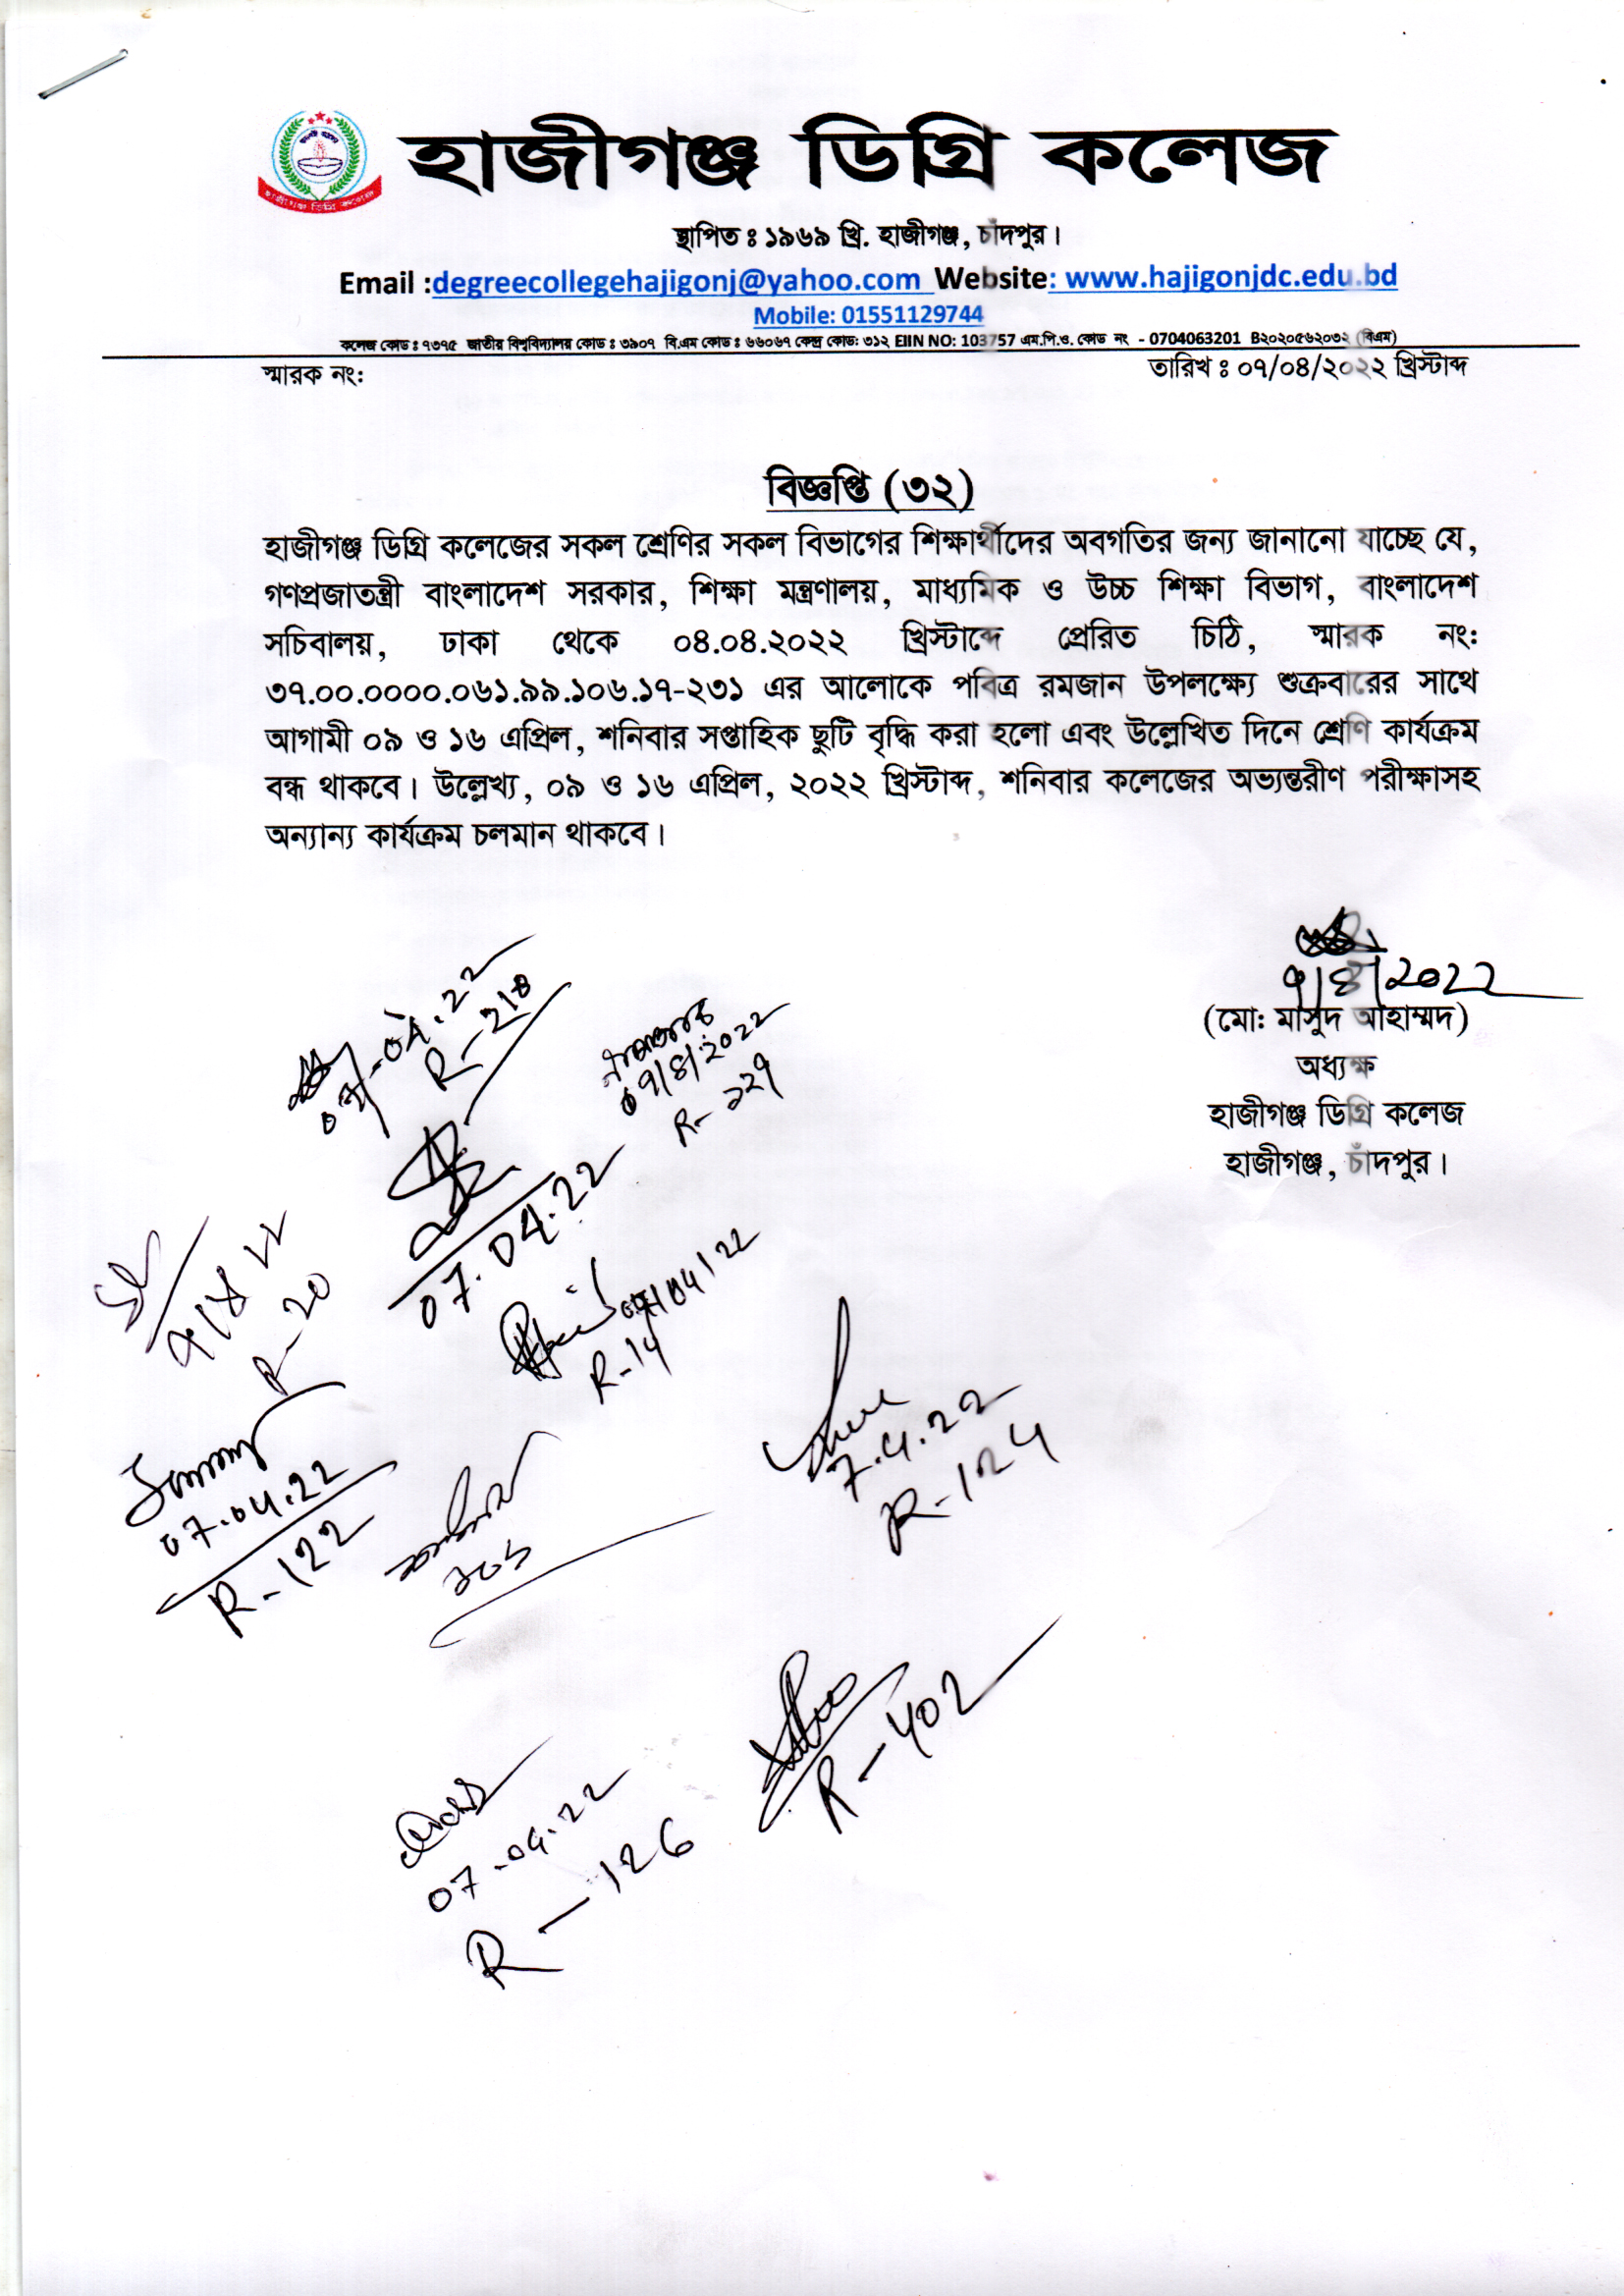 হাজীগঞ্জ ডিগ্রি কলেজ
হাজীগঞ্জ ডিগ্রি কলেজ
স্থাপিত ঃ ১৯৬৯ খ্রি. হাজীগঞ্জ, চাঁদপুর।
Email :degreecollegehajigonj@yahoo.com Website: www.hajigonjdc.edu.bd
Mobile: 01551129744
কলেজ কোড ঃ ৭৩৭৫ জাতীয় বিশ্ববিদ্যালয় কোড ঃ ৩৯০৭ বি.এম কোড ঃ ৬৬০৬৭ কেন্দ্র কোড: ৩১২ EIIN NO: 103757 এম.পি.ও. কোড নং - 0704063201 B২০২০৫৬২০৩২ (বিএম)
স্মারক নং:
তারিখ ঃ ০৭/০৪/২০২২ খ্রিস্টাব্দ
বিজ্ঞপ্তি (৩২)
হাজীগঞ্জ ডিগ্রি কলেজের সকল শ্রেণির সকল বিভাগের শিক্ষার্থীদের অবগতির জন্য জানানো যাচ্ছে যে,
গণপ্রজাতন্ত্রী বাংলাদেশ সরকার, শিক্ষা মন্ত্রণালয়, মাধ্যমিক ও উচ্চ শিক্ষা বিভাগ, বাংলাদেশ
সচিবালয়, ঢাকা থেকে ০৪.০৪.২০২২ খ্রিস্টাব্দে প্রেরিত চিঠি, স্মারক নং:
৩৭.০০.০০০০.০৬১.৯৯.১০৬.১৭-২৩১ এর আলোকে পবিত্র রমজান উপলক্ষ্যে শুক্রবারের সাথে
আগামী ০৯ ও ১৬ এপ্রিল, শনিবার সপ্তাহিক ছুটি বৃদ্ধি করা হলো এবং উল্লেখিত দিনে শ্রেণি কার্যক্রম
বন্ধ থাকবে। উল্লেখ্য, ০৯ ও ১৬ এপ্রিল, ২০২২ খ্রিস্টাব্দ, শনিবার কলেজের অভ্যন্তরীণ পরীক্ষাসহ
অন্যান্য কার্যক্রম চলমান থাকবে।
৭/৪/2022
(মো: মাসুদ আহাম্মদ)
অধ্যক্ষ
হাজীগঞ্জ ডিগ্রি কলেজ
হাজীগঞ্জ, চাঁদপুর।
07-04.22
R-218
০৭/৪/২০২২
R-২২৭
07.04.22
R-20
07/04/22
R-14
07.04.22
R-122
7.4.22
R-124
R-402
07-04.22
R-126